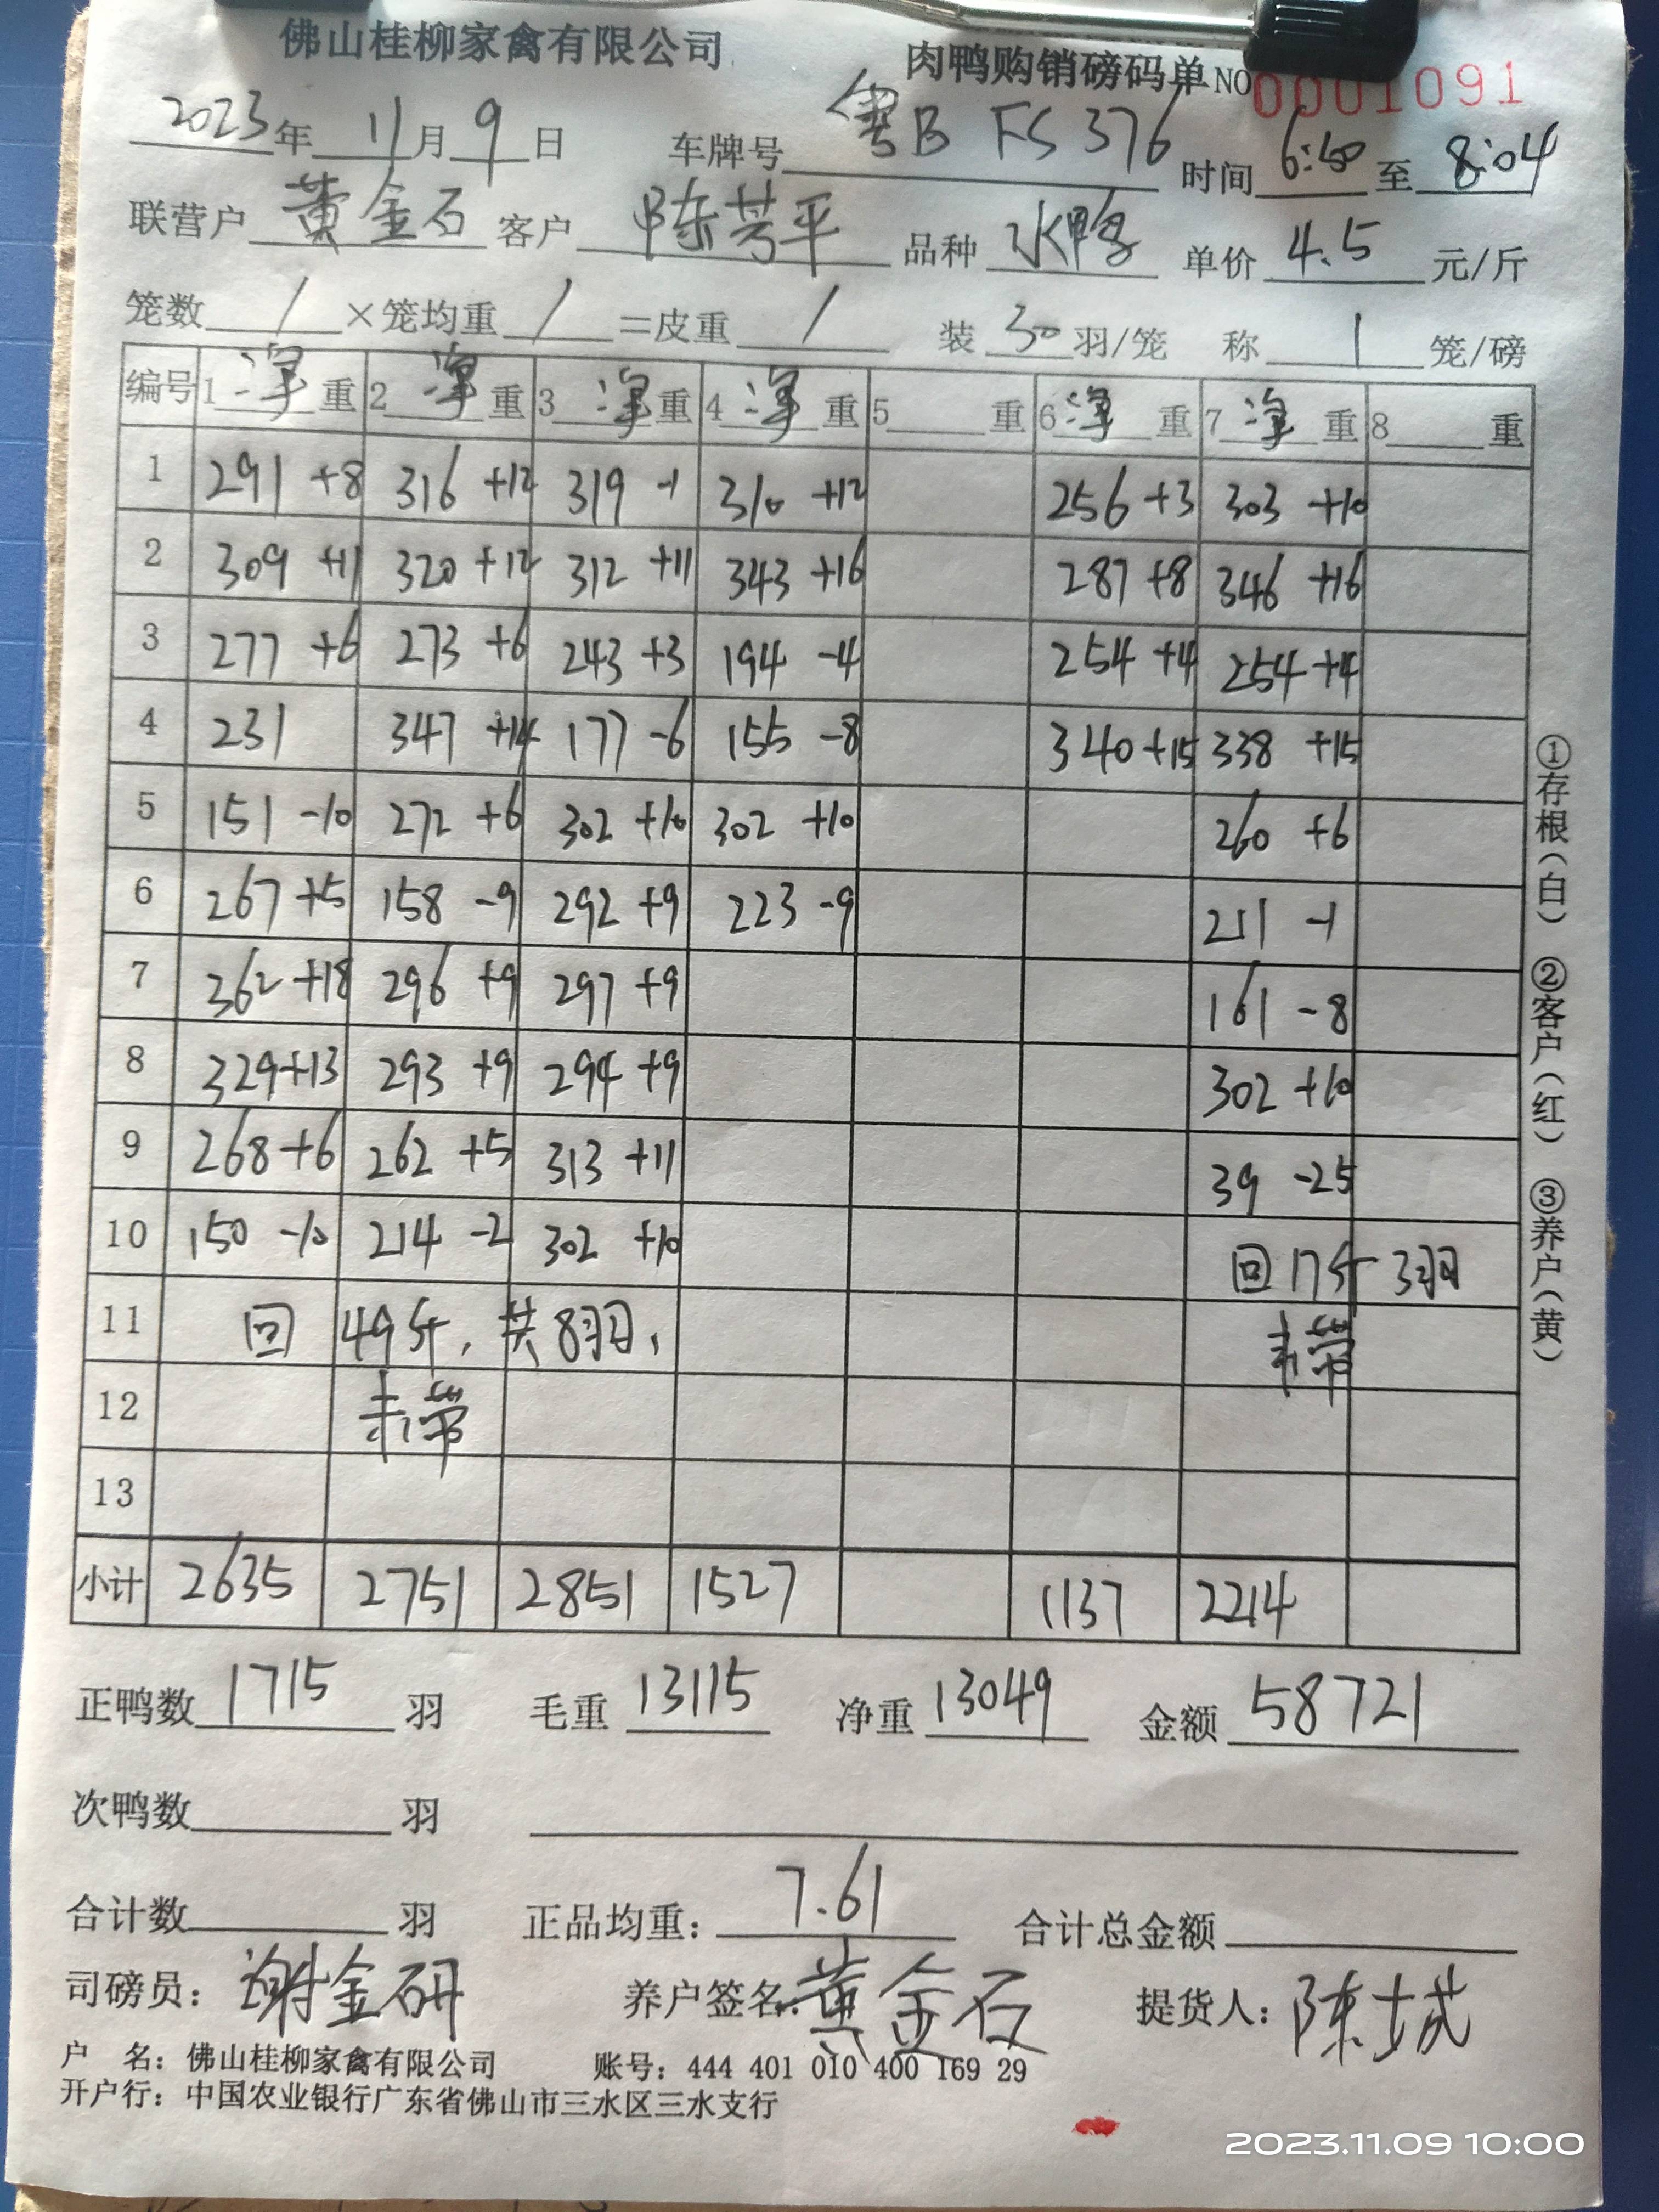 佛山桂柳家禽有限公司 肉鸭购销磅码单 NO 0001091
2023年 11月 9日 车牌号 粤B FS376 时间 6:50 至 8:04
联营户 黄金石 客户 陈芳平 品种 水鸭 单价 4.5 元/斤
笼数 / ×笼均重 / =皮重 / 装 30 羽/笼 称 1 笼/磅
编号 1 净 重 2 净 重 3 净 重 4 净 重 5 重 6 净 重 7 净 重 8 重
1 291 +8 316 +12 319 -1 310 +12 256 +3 303 +10
2 309 +11 320 +12 312 +11 343 +16 287 +8 346 +16
3 277 +6 273 +6 243 +3 194 -4 254 +4 254 +4
4 231 347 +14 177 -6 155 -8 340 +15 338 +15
5 151 -10 272 +6 302 +10 302 +10 260 +6
6 267 +5 158 -9 292 +9 223 -9 211 -1
7 362 +18 296 +9 297 +9 161 -8
8 329 +13 293 +9 294 +9 302 +10
9 268 +6 262 +5 313 +11 39 -25
10 150 -10 214 -2 302 +10 回17斤 3羽
11 回 49斤, 共8羽, 未带
12 未带
13
小计 2635 2751 2851 1527 1137 2214
正鸭数 1715 羽 毛重 13115 净重 13049 金额 58721
次鸭数 羽
合计数 羽 正品均重: 7.61 合计总金额
司磅员: 谢金研 养户签名: 黄金石 提货人: 陈
户 名: 佛山桂柳家禽有限公司 账号: 444 401 010 400 169 29
开户行: 中国农业银行广东省佛山市三水区三水支行
①存根(白) ②客户(红) ③养户(黄)
2023.11.09 10:00